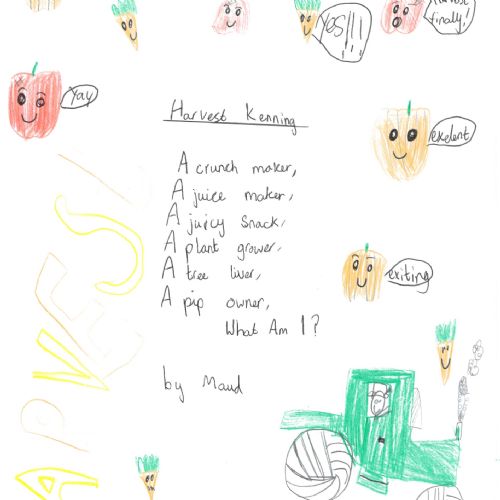 YES!!!
finally!
Yay
exelent
Harvest Kenning
A crunch maker,
A juice maker,
A juicy snack,
A plant grower,
A tree liver,
A pip owner,
What Am I?
exiting
by Maud